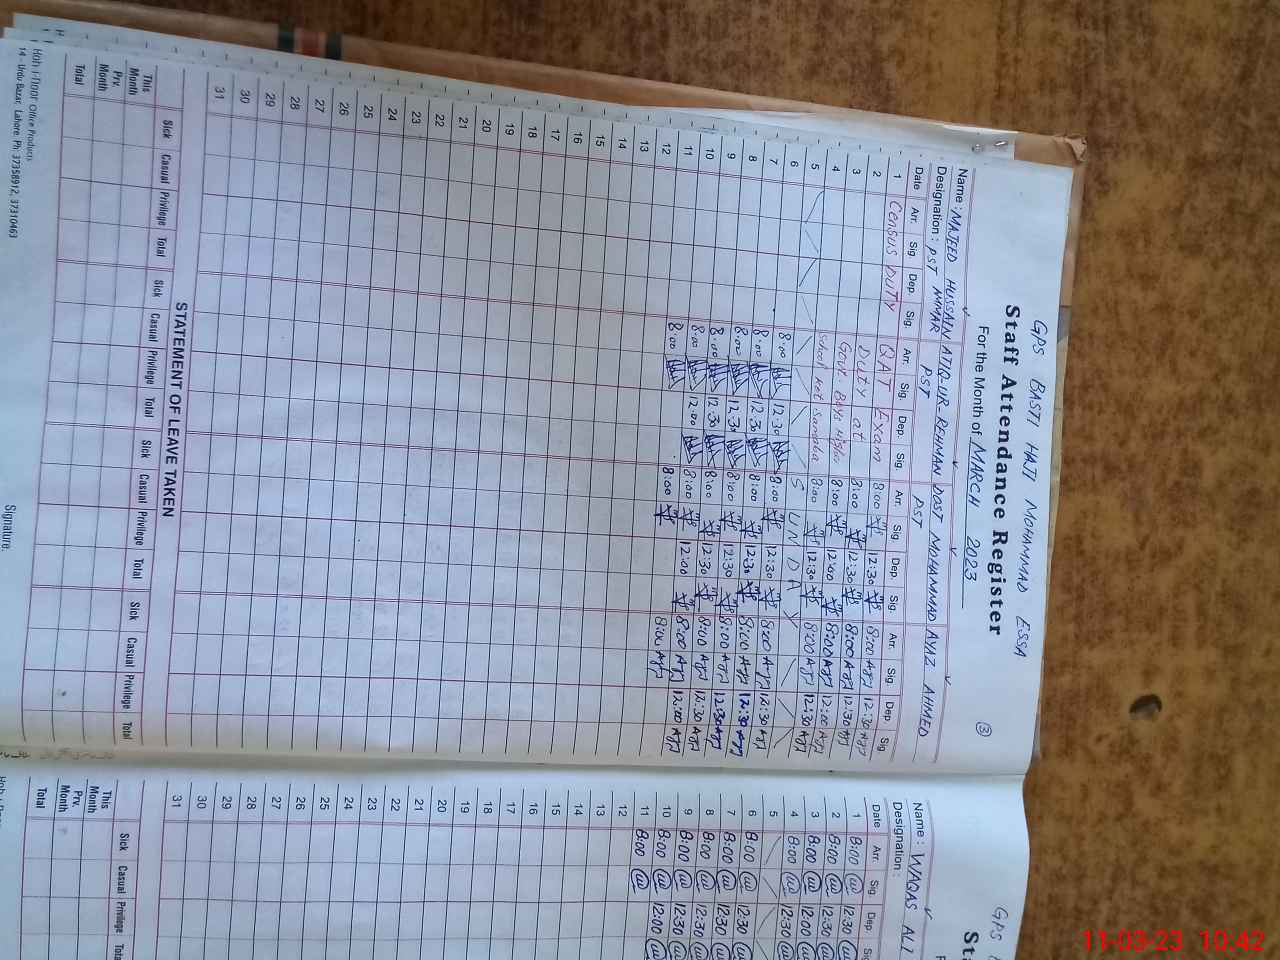 GPS BASTI HAJI MOHAMMAD ESSA
Staff Attendance Register
3
For the Month of MARCH 2023
Name: MAJEED HUSSAIN ATIQ-UR-REHMAN DOST MOHAMMAD AYAZ AHMED
Designation: PST AMMAR PST PST
Date Arr. Sig. Dep. Sig. Arr. Sig. Dep. Sig. Arr. Sig. Dep. Sig. Arr. Sig. Dep. Sig.
1 Census DUTY QAT Exam 8:00 12:30 8:00 12:30
2 Duty at 8:00 12:30 8:00 12:30
3 Govt. Boys Higher 8:00 12:00 8:00 12:00
4 School Kot Samaba 8:00 12:30 8:00 12:30
5 SUNDAY
6 8:00 12:30 8:00 12:30 8:00 12:30
7 8:00 12:30 8:00 12:30 8:00 12:30
8 8:00 12:30 8:00 12:30 8:00 12:30
9 8:00 12:30 8:00 12:30 8:00 12:30
10 8:00 12:00 8:00 12:00 8:00 12:00
11 8:00 8:00 8:00
12
13
14
15
16
17
18
19
20
21
22
23
24
25
26
27
28
29
30
31
STATEMENT OF LEAVE TAKEN
Sick Casual Privilege Total Sick Casual Privilege Total Sick Casual Privilege Total Sick Casual Privilege Total
This Month
Prv. Month
Total
Signature.
Office Products
14 - Urdu Bazar, Lahore. Ph: 37358912, 37310463
GPS
Sta
Name: WAQAS ALI
Designation:
Date Arr. Sig. Dep.
1 8:00 12:30
2 8:00 12:30
3 8:00 12:00
4 8:00 12:30
5
6 8:00 12:30
7 8:00 12:30
8 8:00 12:30
9 8:00 12:30
10 8:00 12:00
11 8:00
12
13
14
15
16
17
18
19
20
21
22
23
24
25
26
27
28
29
30
31
Sick Casual Privilege Total
This Month
Prv. Month
Total
11-03-23 10:42